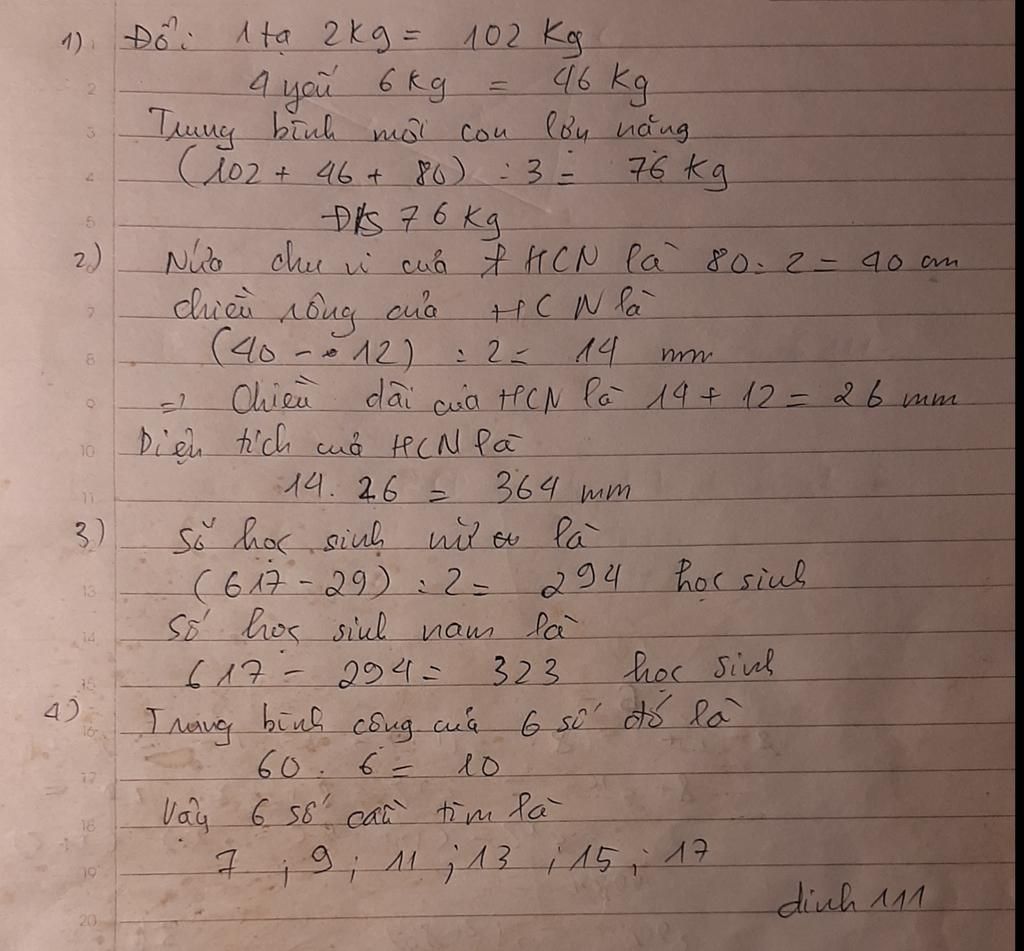 1) Đổi 1 tạ 2 kg = 102 Kg
4 yến 6 Kg = 46 Kg
Trung bình mỗi con lợn nặng
(102 + 46 + 80) : 3 = 76 Kg
ĐS 76 Kg
2) Nửa chu vi của HCN là 80 : 2 = 40 cm
chiều rộng của HCN là
(40 - 12) : 2 = 14 mm
=> Chiều dài của HCN là 14 + 12 = 26 mm
Diện tích của HCN là
14 . 26 = 364 mm
3) Số học sinh nữ là
(617 - 29) : 2 = 294 học sinh
Số học sinh nam là
617 - 294 = 323 học sinh
4) Trung bình cộng của 6 số đó là
60 : 6 = 10
Vậy 6 số cần tìm là
7 ; 9 ; 11 ; 13 ; 15 ; 17
dinh 111